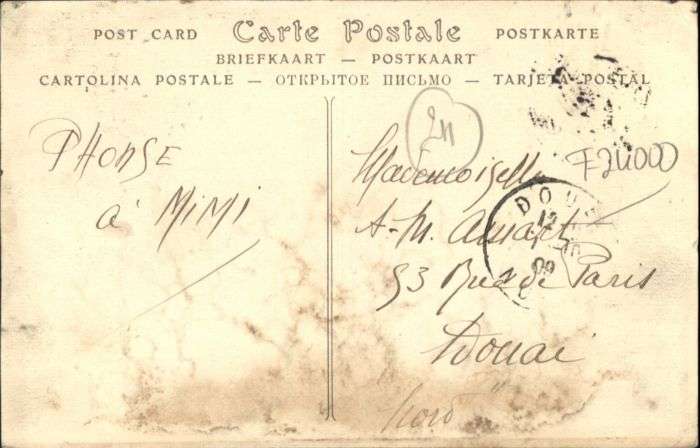 POST CARD Carte Postale POSTKARTE
BRIEFKAART — POSTKAART
CARTOLINA POSTALE — ОТКРЫТОЕ ПИСЬМО — TARJETA POSTAL
PHONSE
à MIMI
24
F24000
Mademoiselle
A-M. Ansart
53 Rue de Paris
Douai
Nord
DOUAI
12
09